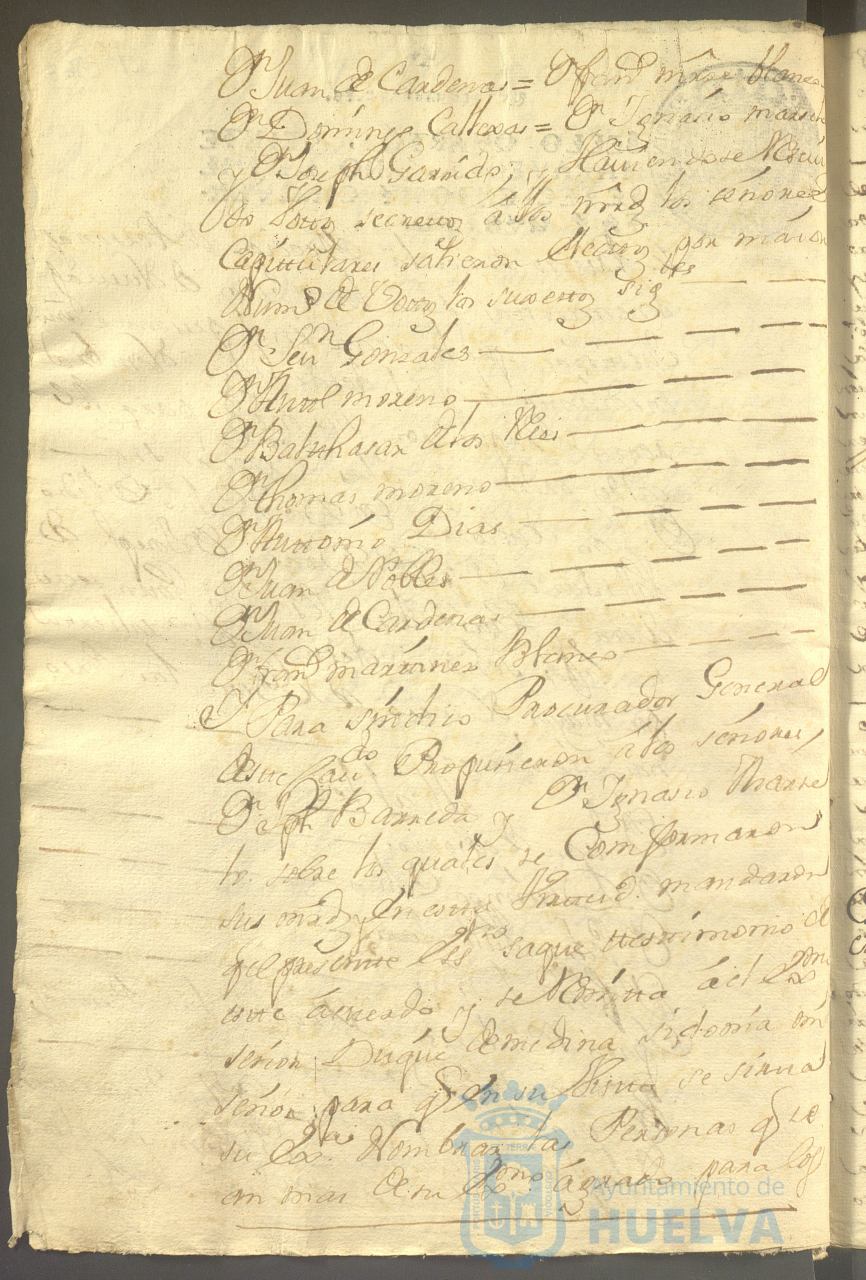 Dn Juan de Cardenas = Dn franco mrnz blanco
Dn Domingo Callexas = Dn Ignasio
y Dn Joseph Garrido; y Haviendose
do Votos secretos á los señores
Capittulares salieron Electos por maior
Numo de Vottos los suxettos sigtes
Dn Sevn Gonzales
Dn Anttl moreno
Dn Balthasar de los Reis
Dn thomas moreno
Dn Anttonio Dias
Dn Juan de Nobles
Dn Juan de Cardenas
Dn franco martines Blanco
Y Para sindico Procurador General
desste Cavdo Propusieron á los señores
Dn Jph Barreda y Dn Ignasio
to sobre los quales se Comformaron
sus mrds y En cuia mandaron
qe el presentte Essno saque testtimonio de
estte acuerdo y se Remitta á el Exmo
señor Duque de medina sidonia mi
señor para qe En su Vistta se sirva
su Exa Nombrar las Personas qe se
an mas de su agrado para los
Ayuntamiento de
HUELVA